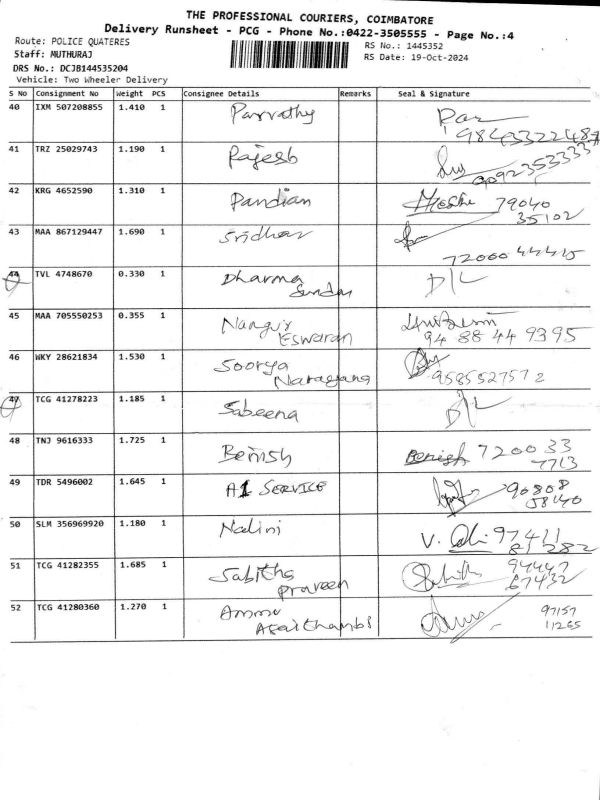 THE PROFESSIONAL COURIERS, COIMBATORE
Delivery Runsheet - PCG - Phone No.:0422-3505555 - Page No.:4
Route: POLICE QUATERES
RS No.: 1445352
Staff: MUTHURAJ
RS Date: 19-Oct-2024
DRS No.: DCJB144535204
Vehicle: Two Wheeler Delivery
S No Consignment No Weight PCS Consignee Details Remarks Seal & Signature
40 IXM 507208855 1.410 1 Parvathy
9843322487
41 TRZ 25029743 1.190 1 Rajesh
9092353333
42 KRG 4652590 1.310 1 Pandian 79040
35102
43 MAA 867129447 1.690 1 Sridhar
72000 44415
44 TVL 4748670 0.330 1 Dharma D/L
Sundar
45 MAA 705550253 0.355 1
Eswaran 94 88 44 9395
46 WKY 28621834 1.530 1 Soorya
Narayana 9585527572
47 TCG 41278223 1.185 1 Sabeena D/L
48 TNJ 9616333 1.725 1 Benish Benish 7200 33
7713
49 TDR 5496002 1.645 1 A1 SERVICE 90808
58140
50 SLM 356969920 1.180 1 Nalini V. 97411
81282
51 TCG 41282355 1.685 1 Sabitha 94447
Praveen 67432
52 TCG 41280360 1.270 1 Ammu 97157
Azaithambi 11265